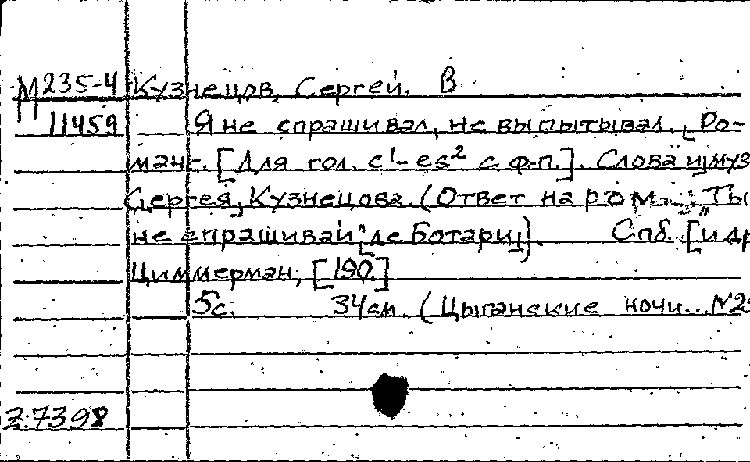 М 235-4 Кузнецов, Сергей. В
11459 Я не спрашивал, не выпытывал. Ро-
манс. [Для гол. c¹-es² с ф-п.]. Слова и муз
Сергея Кузнецова. (Ответ на ром...: "Ты
не спрашивай" [де Ботари]). Спб. [и др
Циммерман, [190.]
5с. 34см. (Цыганские ночи... №25
37398